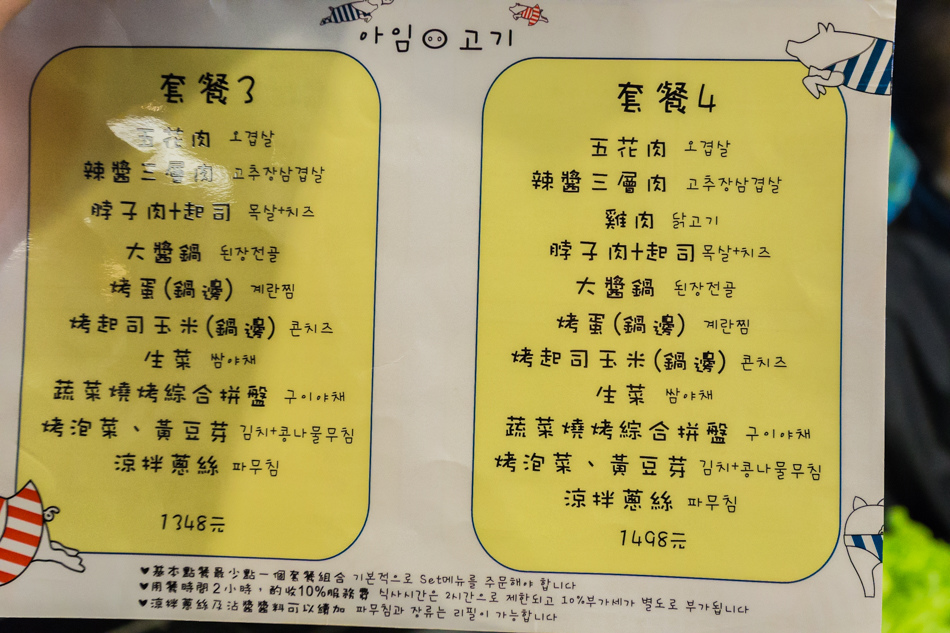 아임 고기
套餐3
五花肉 오겹살
辣醬三層肉 고추장삼겹살
脖子肉+起司 목살+치즈
大醬鍋 된장전골
烤蛋(鍋邊) 계란찜
烤起司玉米(鍋邊) 콘치즈
生菜 쌈야채
蔬菜燒烤綜合拼盤 구이야채
烤泡菜、黃豆芽 김치+콩나물무침
涼拌蔥絲 파무침
1348元
套餐4
五花肉 오겹살
辣醬三層肉 고추장삼겹살
雞肉 닭고기
脖子肉+起司 목살+치즈
大醬鍋 된장전골
烤蛋(鍋邊) 계란찜
烤起司玉米(鍋邊) 콘치즈
生菜 쌈야채
蔬菜燒烤綜合拼盤 구이야채
烤泡菜、黃豆芽 김치+콩나물무침
涼拌蔥絲 파무침
1498元
♥基本點餐最少點一個套餐組合 기본적으로 Set메뉴를 주문해야 합니다
♥用餐時間2小時，酌收10%服務費 식사시간은 2시간으로 제한되고 10%부가세가 별도로 부가됩니다
♥涼拌蔥絲及沾醬醬料可以續加 파무침과 장류는 리필이 가능합니다